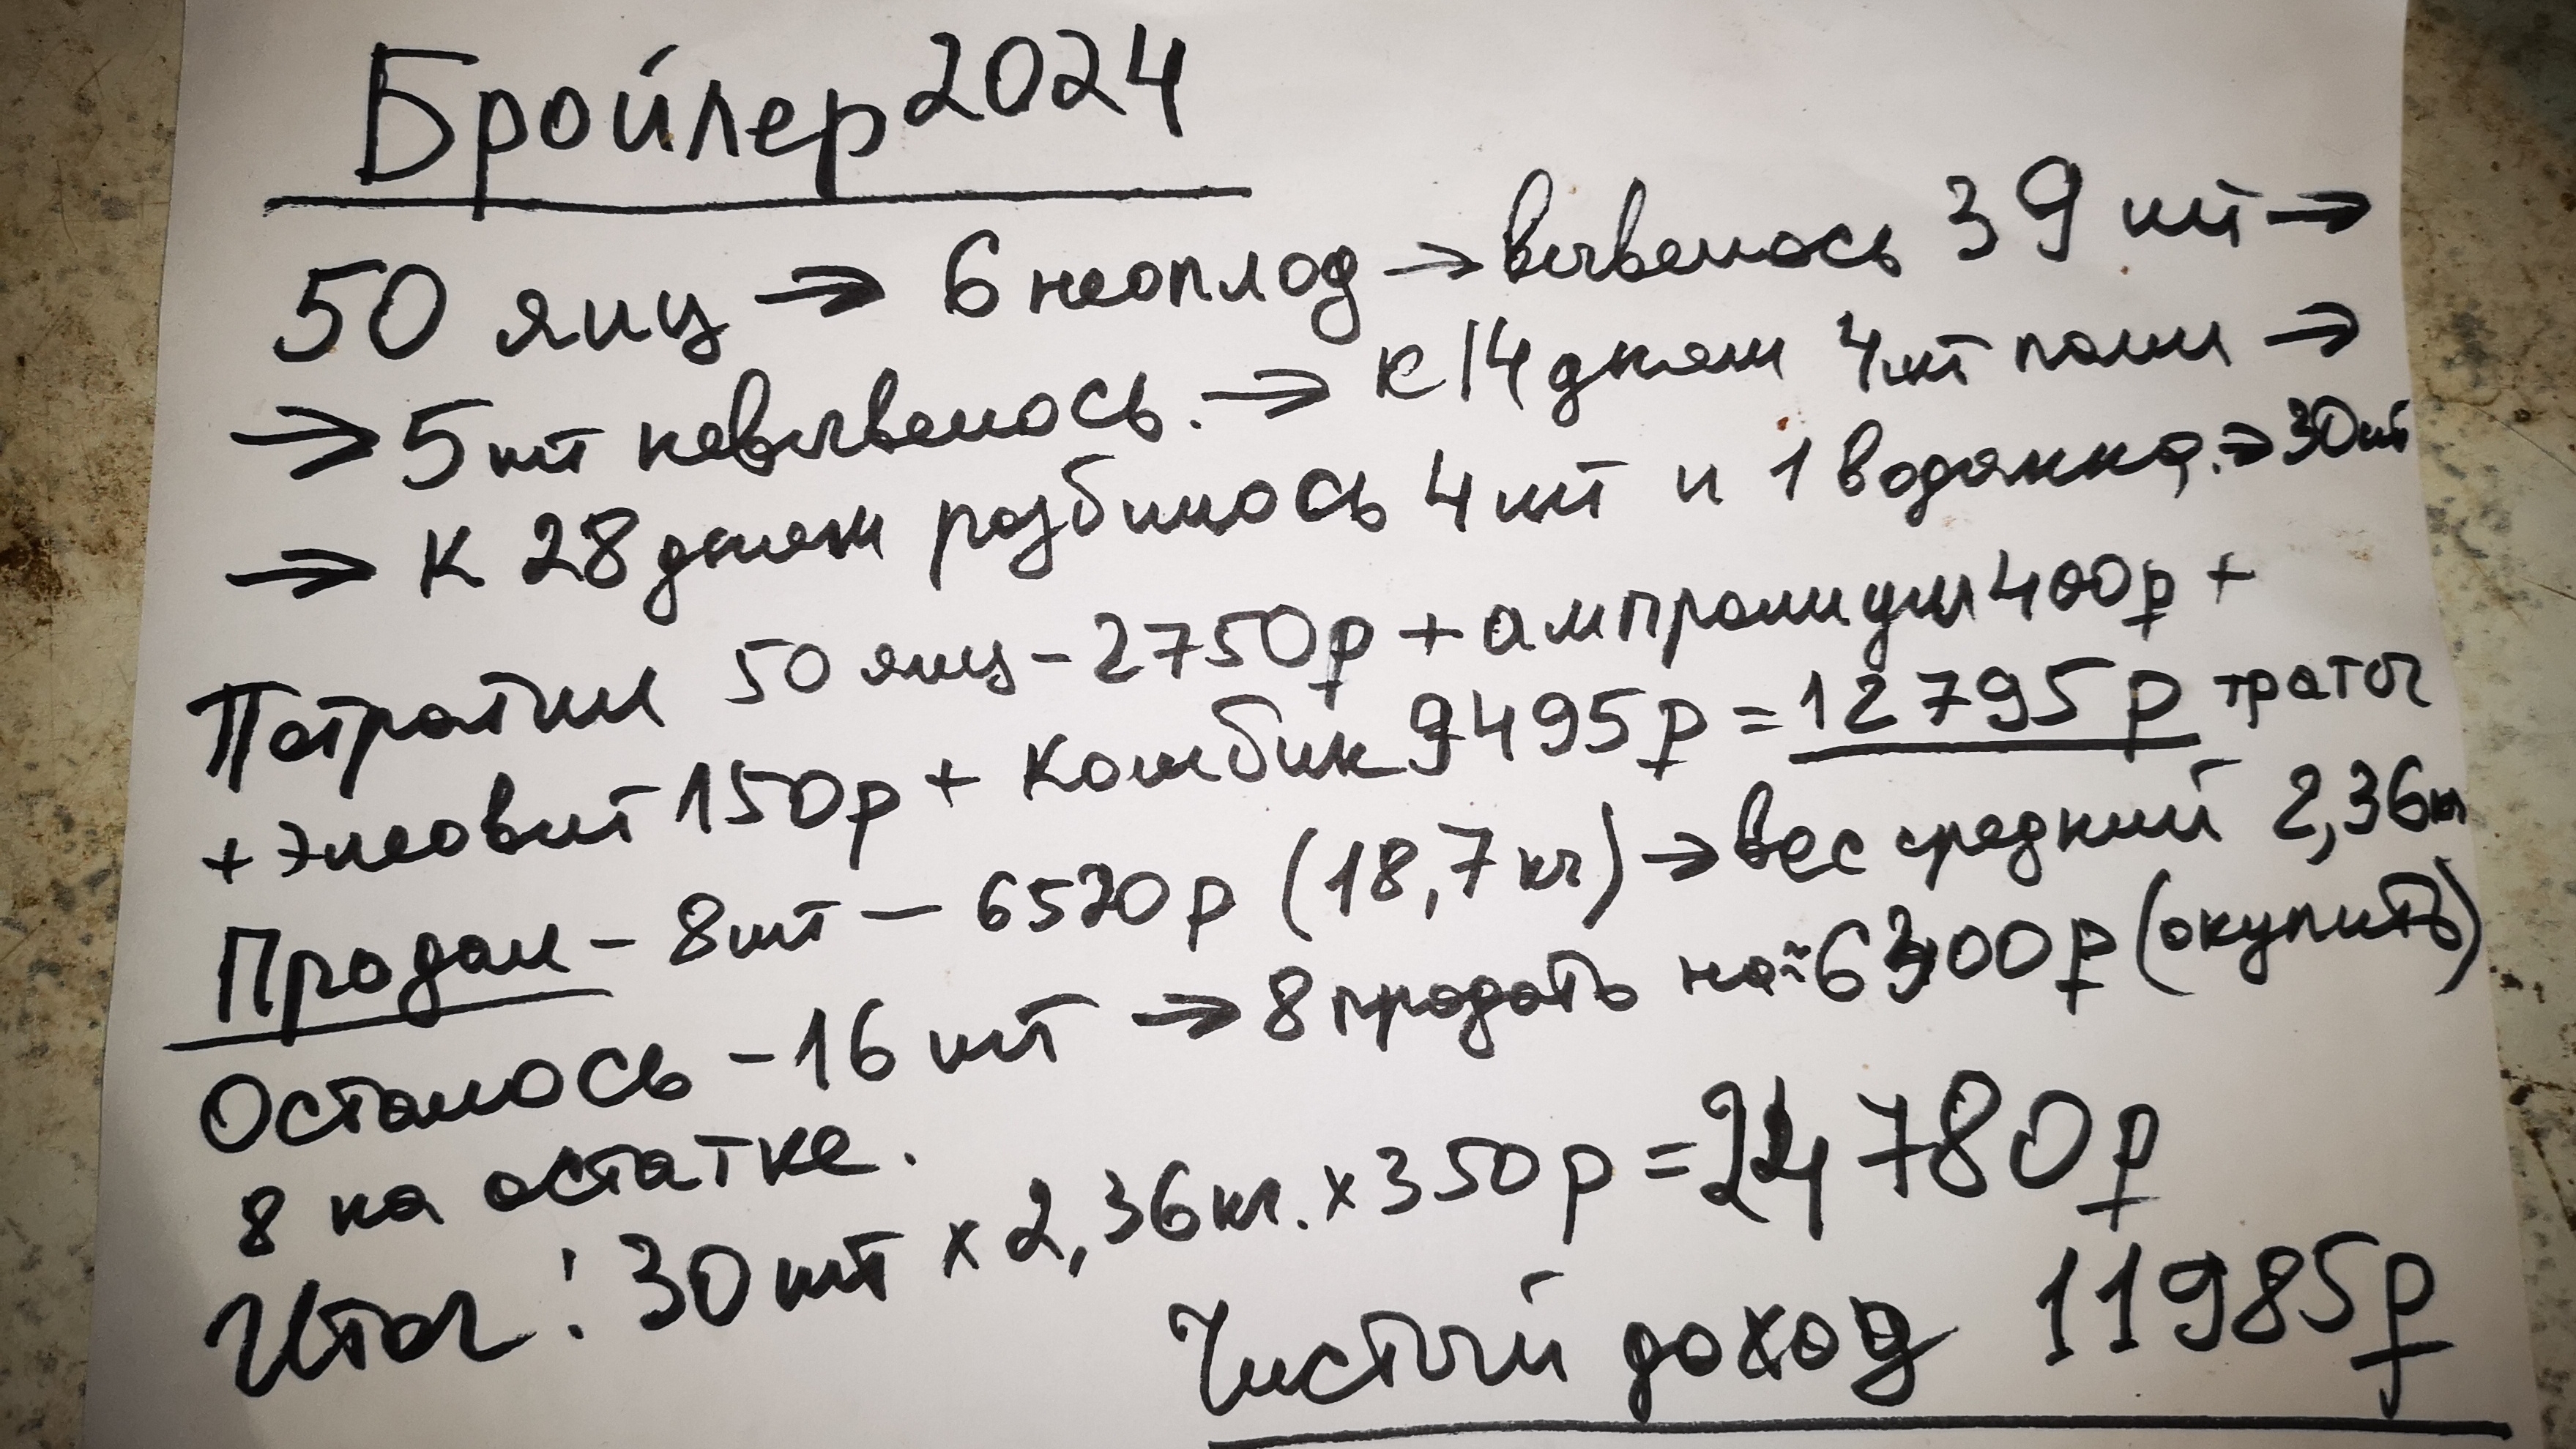 Бройлер 2024
50 яиц → 6 неоплод → вывелось 39 шт →
→ 5 шт невывелось. → к 14 дням 4 шт пали →
→ к 28 дням разбилось 4 шт и 1 водянка. → 30 шт
Потратил 50 яиц - 2750р + ампролиум 400р +
+ элеовит 150р + комбик 9495р = 12795р трат
Продал - 8 шт - 6520р (18,7 кг) → вес средний 2,36 кг
Осталось - 16 шт → 8 продать на ≈ 6300р (окупить)
8 на остатке.
Итог: 30 шт x 2,36 кг. x 350р = 24780р
Чистый доход 11985р